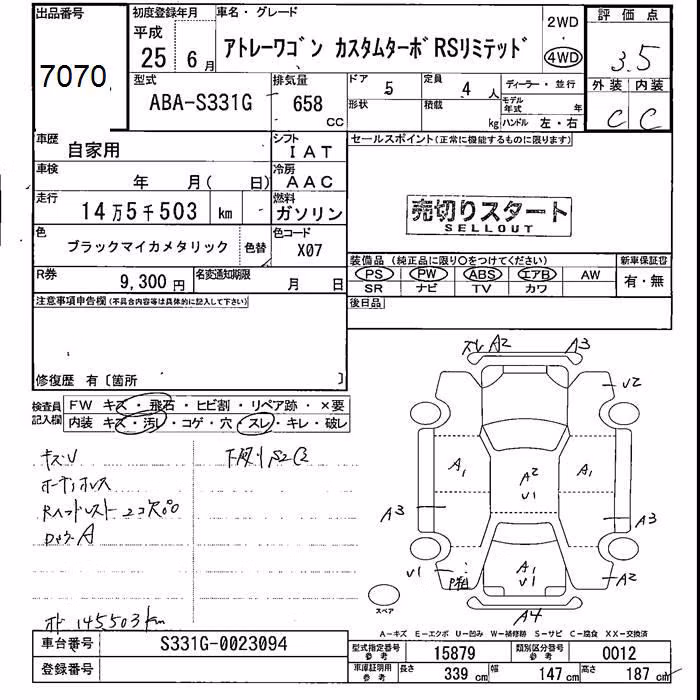 出品番号
7070
初度登録年月 車名・グレード
平成
25年 6月
アトレーワゴン カスタムターボRSリミテッド
2WD
4WD
評価点
3.5
外装 内装
C C
型式
ABA-S331G
排気量
658
CC
ドア 5
定員 4人
形状
積載 kg
ディーラー・並行
モデル年式 年
ハンドル 左・右
車歴
自家用
シフト
IAT
車検
年 月( 日)
冷房
AAC
走行
14万5千503 km
燃料
ガソリン
色
ブラックマイカメタリック
色替
色コード
X07
R券
9,300円
名変通知期限
月 日
セールスポイント(正常に機能するものに限ります)
売切りスタート
SELLOUT
装備品(純正品に限り○をつけてください)
PS PW ABS エアB AW
SR ナビ TV カワ
新車保証書
有・無
後日品
注意事項申告欄(不具合内容等は具体的に記入して下さい)
修復歴 有〔箇所 〕
検査員記入欄
FW キズ・飛石・ヒビ割・リペア跡・×要
内装 キズ・汚レ・コゲ・穴・スレ・キレ・破レ
キズU
R ヘッドレスト 2コ欠品
A
下廻り S2 C2
145503km
A2 A3
U2
A1 A2 U1 A1
A3 A3
U1 A1 U1 A2
A4
スペア
A-キズ E-エクボ U-凹み W-補修跡 S-サビ C-腐食 XX-交換済
車台番号
S331G-0023094
登録番号
型式指定番号 参考
15879
類別区分番号 参考
0012
車庫証明用 参考
長さ 339cm
幅 147cm
高さ 187cm